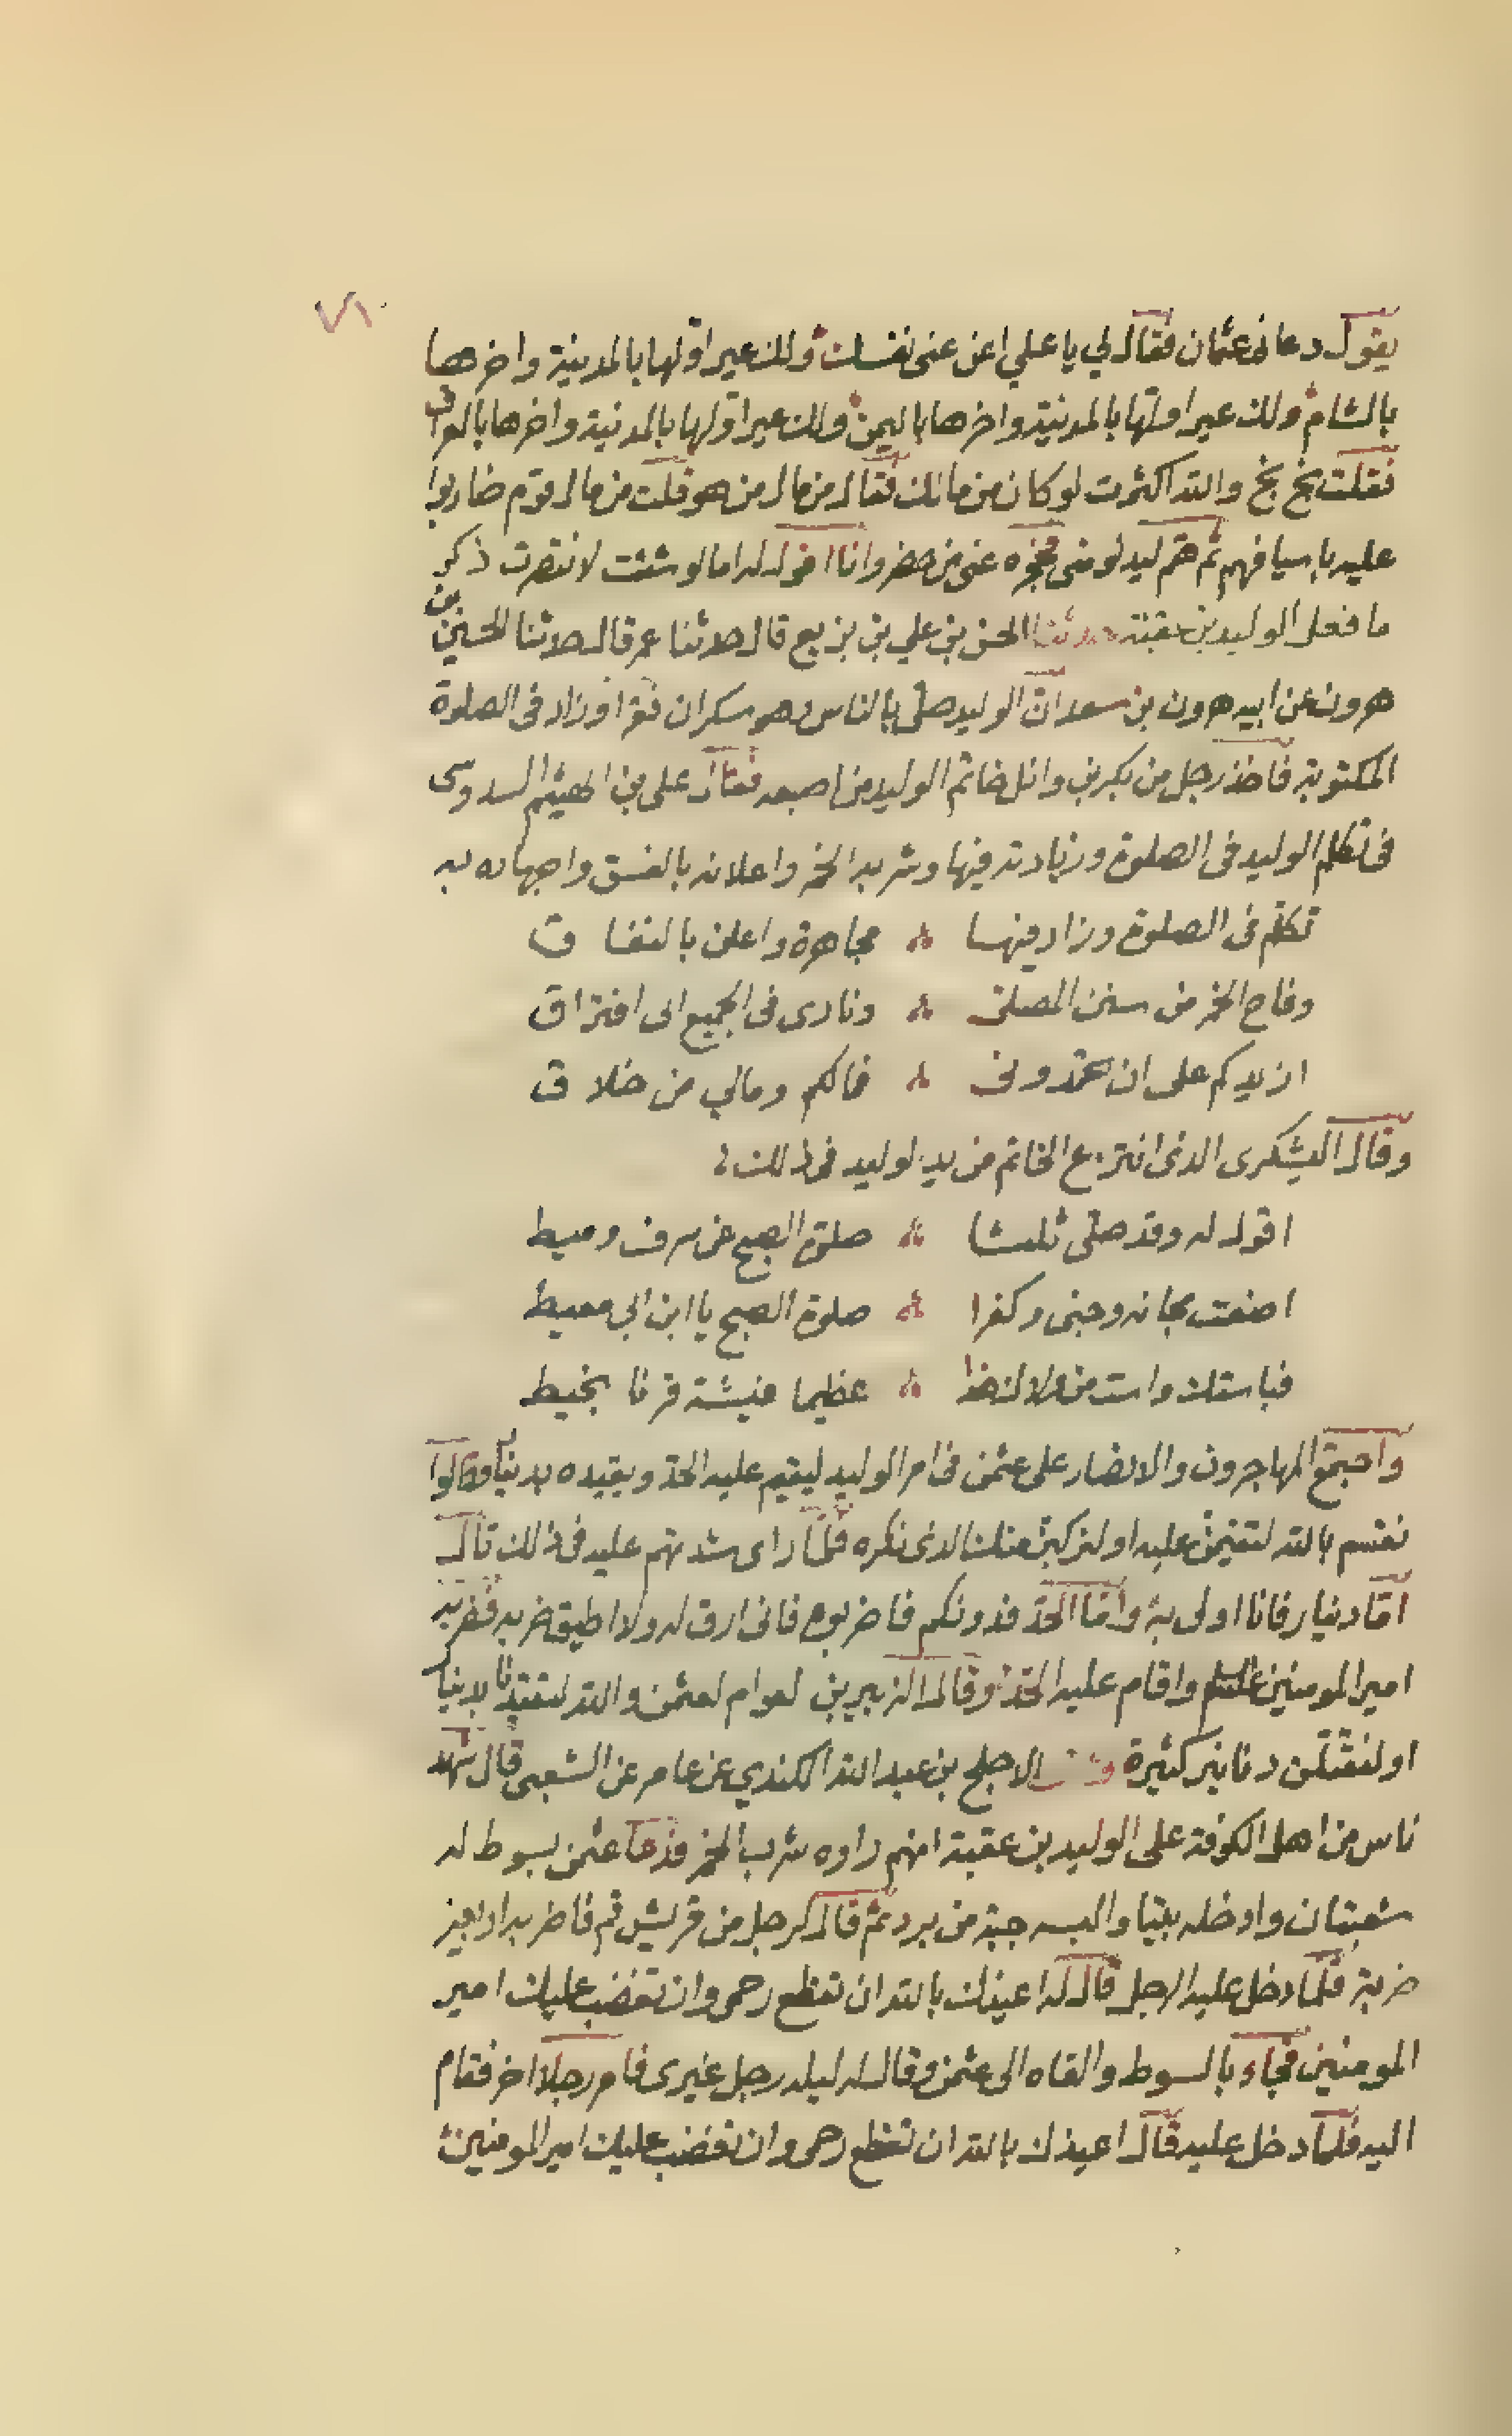 ٧١
يقول دعانى عثمان فقال لي يا علي اغن عنى نفسك ولك عير اولها بالمدينة واخرها
بالشام ولك عير اولها بالمدينة واخرها باليمن ولك عير اولها بالمدينة واخرها بالعراق
فقلت بخ بخ والله اكثرت لو كان من مالك فقال من مال من هو قلت من مال قوم ضاربوا
عليه باسيافهم ثم هم ليدلو منى فحجزه عنى من حضر وانا اقول له اما لو شئت لانتصرت ذكر
ما فعل الوليد بن عقبة حدثنا الحسن بن علي بن بزيع قال حدثنا عمر قال حدثنا الحسين بن
هرون عن ابيه هرون بن سعد ان الوليد صلى بالناس وهو سكران فقرا وزاد فى الصلوة
المكتوبة فاخذ رجل من بكر بن وائل خاتم الوليد من اصبعه فقال على بن الهيثم السدوسى
فى تكلم الوليد فى الصلوة وزيادته فيها وشربه الخمر واعلانه بالفسق واجهاره به
تكلم فى الصلوة وزاد فيها ۞ مجاهرة واعلن بالنفاق
وفاح الخمر من سنن المصلى ۞ ونادى فى الجميع الى افتراق
ازيدكم على ان تحمدونى ۞ فمالكم ومالي من خلاق
وقال اليشكرى الذى انتزع الخاتم من يد الوليد فى ذلك
اقول له وقد صلى ثلثا ۞ صلوة الصبح عن سرف وميط
اضعت مجانة وجنى وكفرا ۞ صلوة الصبح يا ابن ابي معيط
فباستك واست من ولاك ۞ عظيما قرنا بخيط
واجتمع المهاجرون والانصار على عثمن فى امر الوليد ليقيم عليه الحد ويقيده بدينار وقالوا
نقسم بالله لتقيمن عليه او لنركبن منك الذى نكره فلما راى شدتهم عليه فى ذلك قال
اما دينار فانا اولى به واما الحد فدونكم فاضربوه فانى ارق له ولا اطيق ضربه فضربه
امير المومنين عليه السلم واقام عليه الحد وقال الزبير بن العوام لعثمن والله لتقيدنا بدينار
او لنقتلن دنانير كثيرة الاجلح بن عبد الله الكندي عن عامر عن الشعبى قال شهد
ناس من اهل الكوفة على الوليد بن عقبة انهم راوه شرب الخمر فدعا عثمن بسوط له
شعبتان وادخله بيتا والبسه جبة من برد ثم قال لرجل من قريش قم فاضربه اربعين
ضربة فلما دخل عليه الرجل قال له اعيذك بالله ان تقطع رحمى وان تغضب عليك امير
المومنين فجاء بالسوط والقاه الى عثمن وقال له ليله رجل غيرى فامر رجلا اخر فقام
اليه فلما دخل عليه قال اعيذك بالله ان تقطع رحمى وان تغضب عليك امير المومنين